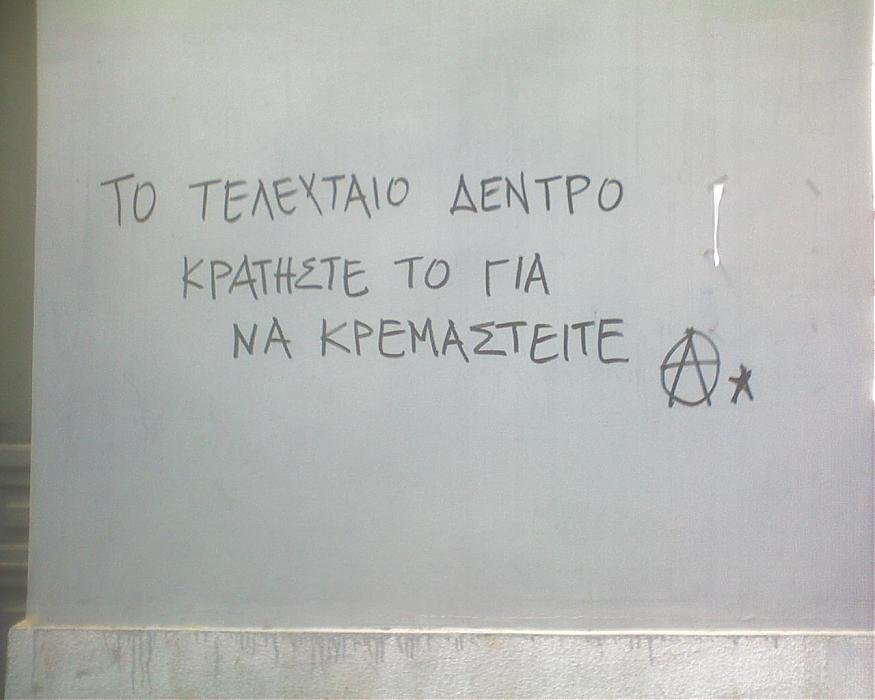 ΤΟ ΤΕΛΕΥΤΑΙΟ ΔΕΝΤΡΟ
ΚΡΑΤΗΣΤΕ ΤΟ ΓΙΑ
ΝΑ ΚΡΕΜΑΣΤΕΙΤΕ Ⓐ*